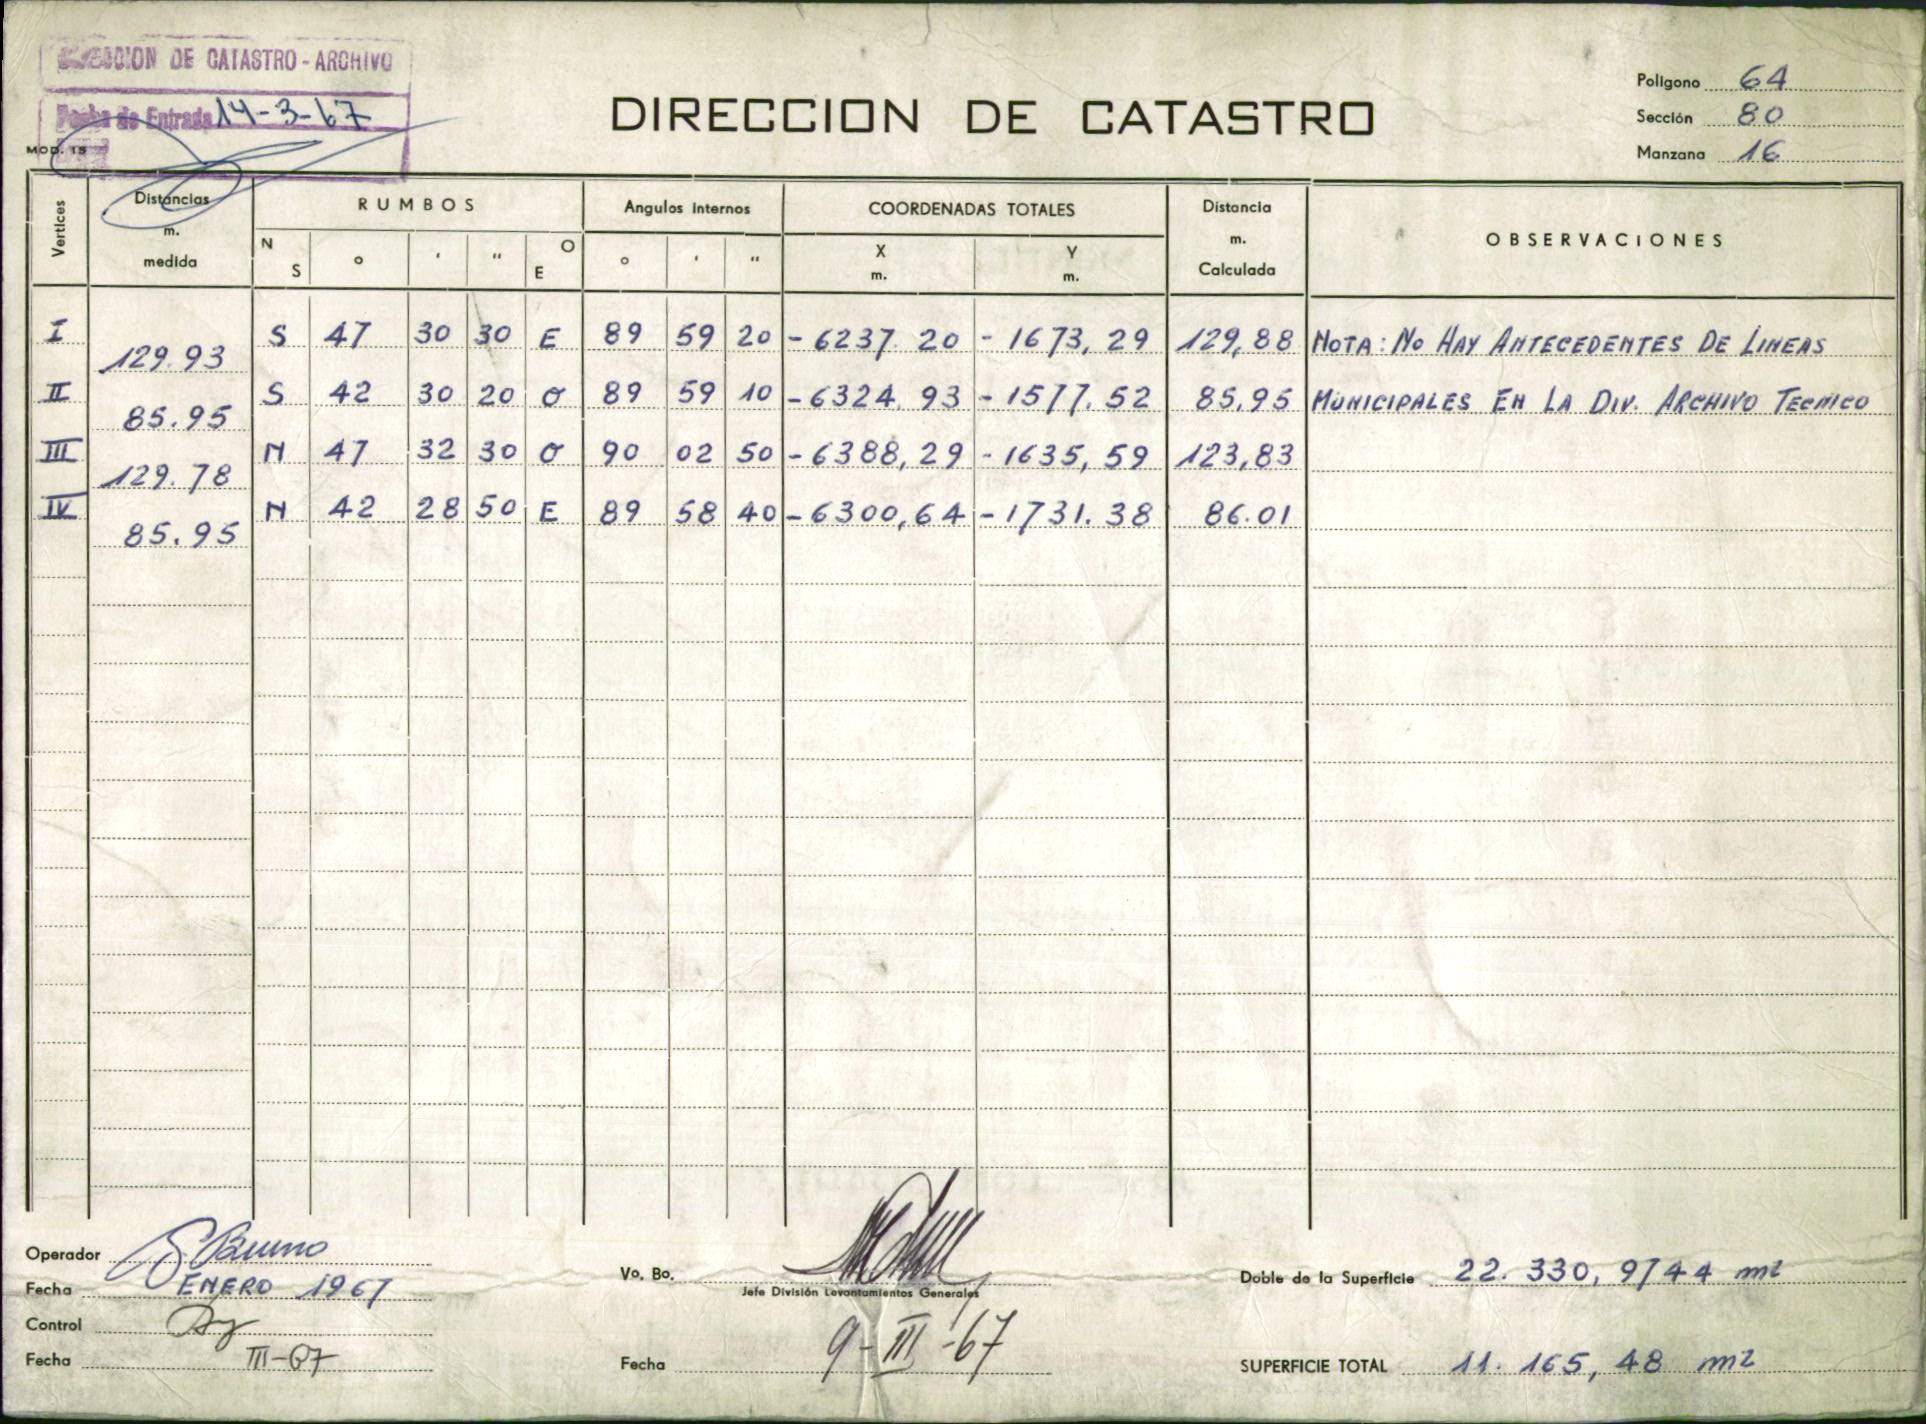 DIRECCION DE CATASTRO - ARCHIVO
Fecha de Entrada 14-3-67
MOD. 15
DIRECCION DE CATASTRO
Poligono 64
Sección 80
Manzana 16
Vertices Distancias m. medida RUMBOS Angulos Internos COORDENADAS TOTALES Distancia m. Calculada OBSERVACIONES
N S ° ' " O E ° ' " X m. Y m.
I 129.93 S 47 30 30 E 89 59 20 -6237.20 -1673,29 129,88 NOTA: NO HAY ANTECEDENTES DE LINEAS
II 85.95 S 42 30 20 O 89 59 10 -6324.93 -1577.52 85.95 MUNICIPALES EN LA DIV. ARCHIVO TECNICO
III 129.78 N 47 32 30 O 90 02 50 -6388,29 -1635,59 123,83
IV 85.95 N 42 28 50 E 89 58 40 -6300,64 -1731.38 86.01
Operador Bruno
Fecha ENERO 1967
Control
Fecha III-67
Vo. Bo.
Jefe División Levantamientos Generales
Fecha 9-III-67
Doble de la Superficie 22.330,9744 m2
SUPERFICIE TOTAL 11.165,48 m2